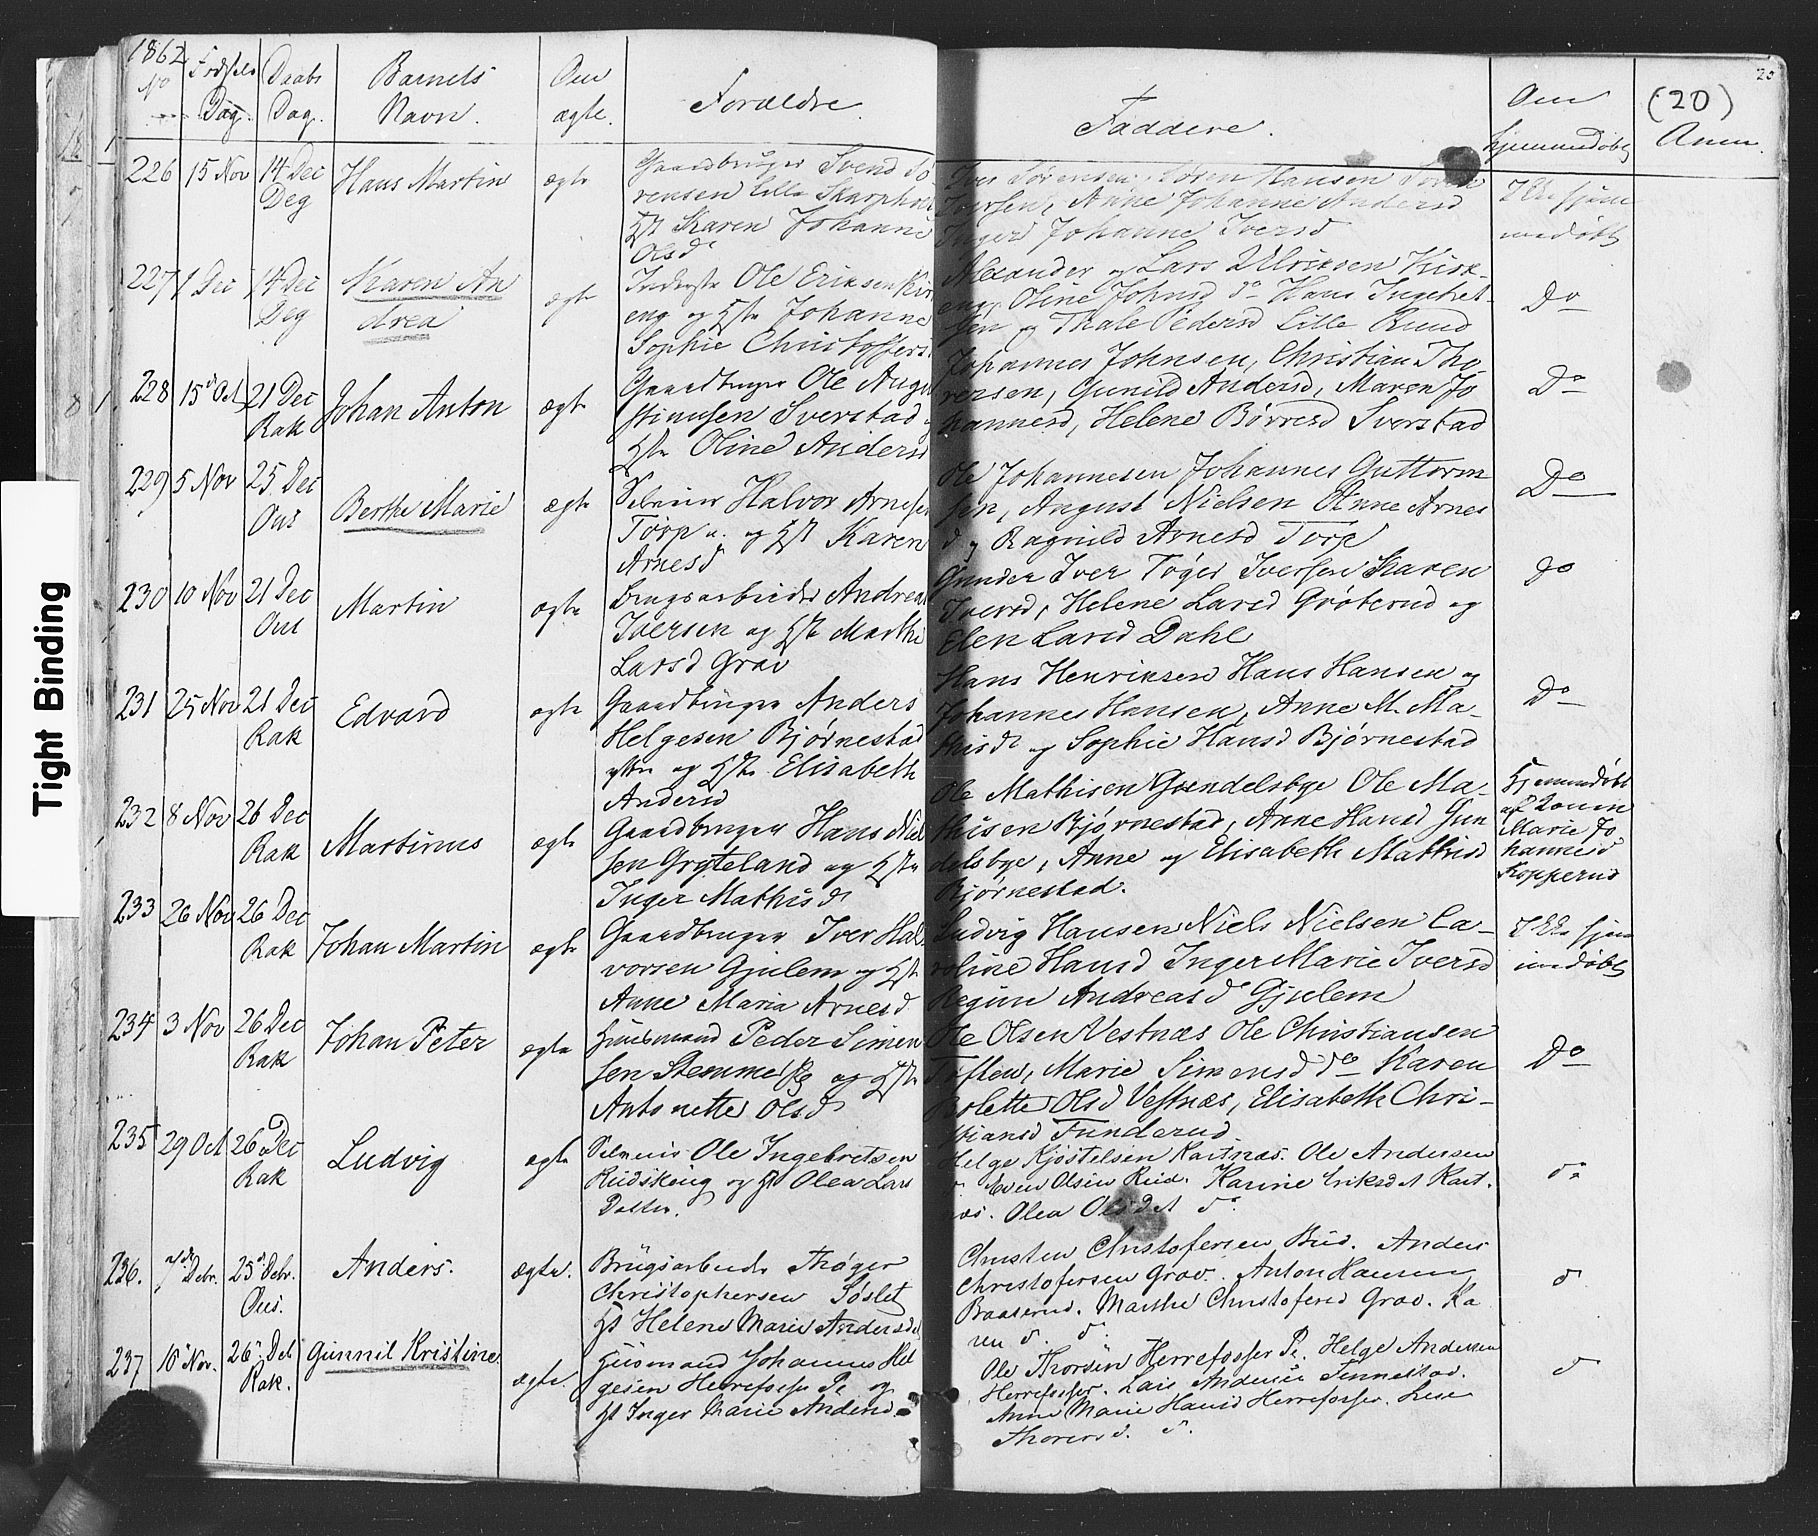 1862
No
Fødsels
Dag.
Daabs
Dag.
Barnets
Navn.
Om
ægte.
Forældre.
Faddere.
Om
hjemmedøbt
(20)
Anm.
20
226 15 Nov 14 Dec Deg Hans Martin ægte
Gaardbruger Svend Sø
rensen Lille Skarpholt
Hst Karen Johanne
Olsd
Iver Sørensen, Hansen
Iversen, Anne Johanne Andersd
Inger Johanne Iversd
Ikke hjem
medøbt
227 1 Dec 14 Dec Deg Karen An
drea ægte
Inderste Ole Eriksen Kirk
eng og Hst Johanne
Sophie Christoffers
Alexander og Lars Ulriksen Kirk-
eng, Oline Johnsd do Hans Ingebret-
sen og Thale Pedersd Lille Rund
Do
228 15d Oct 21 Dec Rak Johan Anton ægte
Gaardbruger Ole Augu
stinusen Sverstad
Hst Oline Andersd
Johannes Johnsen, Christian Tho
rersen, Gunild Andersd, Maren Jo
hannesd, Helene Børresd Sverstad
Do
229 5 Nov 25 Dec Ons Berthe Marie ægte
Selveier Halvor Arnesen
Torp og Hst Karen
Arnesd
Ole Johannesen Johannes Guttorm
sen, August Nielsen Anne Arnes
d og Ragnild Arnesd Torp
Do
230 10 Nov 21 Dec Ons Martin ægte
Brugsarbeider Andreas
Iversen og Hst Marthe
Larsd Grav
Gunder Iver Tøger Iversen Karen
Iversd, Helene Larsd Grøterud og
Elen Larsd Dahl
Do
231 25 Nov 21 Dec Rak Edvard ægte
Gaardbruger Anders
Helgesen Bjørnestad
yttre og Hst Elisabeth
Andersd
Hans Henriksen Hans Hansen og
Johannes Hansen, Anne M. Ma-
thisd og Sophie Hansd Bjørnestad
Do
232 8 Nov 26 Dec Rak Martinus ægte
Gaardbruger Hans Niel
sen Gryteland og Hst
Inger Mathisd
Ole Mathisen Gundelsbye Ole Ma-
thisen Bjørnestad, Anne Hansd Gun
delsbye, Anne og Elisabeth Mathisd
Bjørnestad.
Hjemmedøbt
af Konen
Marie Jo
hannesd
Kopperud
233 26 Nov 26 Dec Rak Johan Martin ægte
Gaardbruger Iver Hal
vorsen Gjulem og Hst
Anne Maria Arnesd
Ludvig Hansen Niels Nielsen Ca-
roline Hansd Inger Marie Iversd
Regine Andreasd Gjulem
Ikke hjem
medøbt
234 3 Nov 26 Dec Rak Johan Peter ægte
Huusmand Peder Simen
sen Stemme og Hst
Antonette Olsd
Ole Olsen Vestnæs Ole Christiansen
Toften, Marie Simensd do Karen
Bolette Olsd Vestnæs, Elisabeth Chri-
stiansd Funderud
Do
235 29 Oct 26 Dec Rak Ludvig ægte
Selveier Ole Ingebretsen
Rudskeng og Hst Olea Lars
Datter.
Helge Kjøstelsen Kaitnæs. Ole Andersen
d. Even Olsen Rud. Karine Eriksdat Kait-
næs. Olea Olsdat do
do
236. 7de Debr. 25d Debr. Ons. Anders. ægte.
Brugsarbeider Thøger
Christophersen Søslet
Hst Helene Marie Andersdat
Christen Christofersen Bud. Anders
Christofersen Grav. Anton Hansen
Braaserud. Marthe Christofersd Grav. Ka
ren d. do
d
237 10 Nov. 26 Det Rak. Gunnil Kristine. ægte.
Huusmand Johannes Hel
gesen Herrefosser Pe og
Hst Inger Marie Andersd.
Ole Thorsen Herrefosser Pe. Helge Andersen
Herrefosser. Lars Andersen Tennestad.
Anne Marie Hansd Herrefosser. Lise
Thorersd. d.
d
Tight Binding